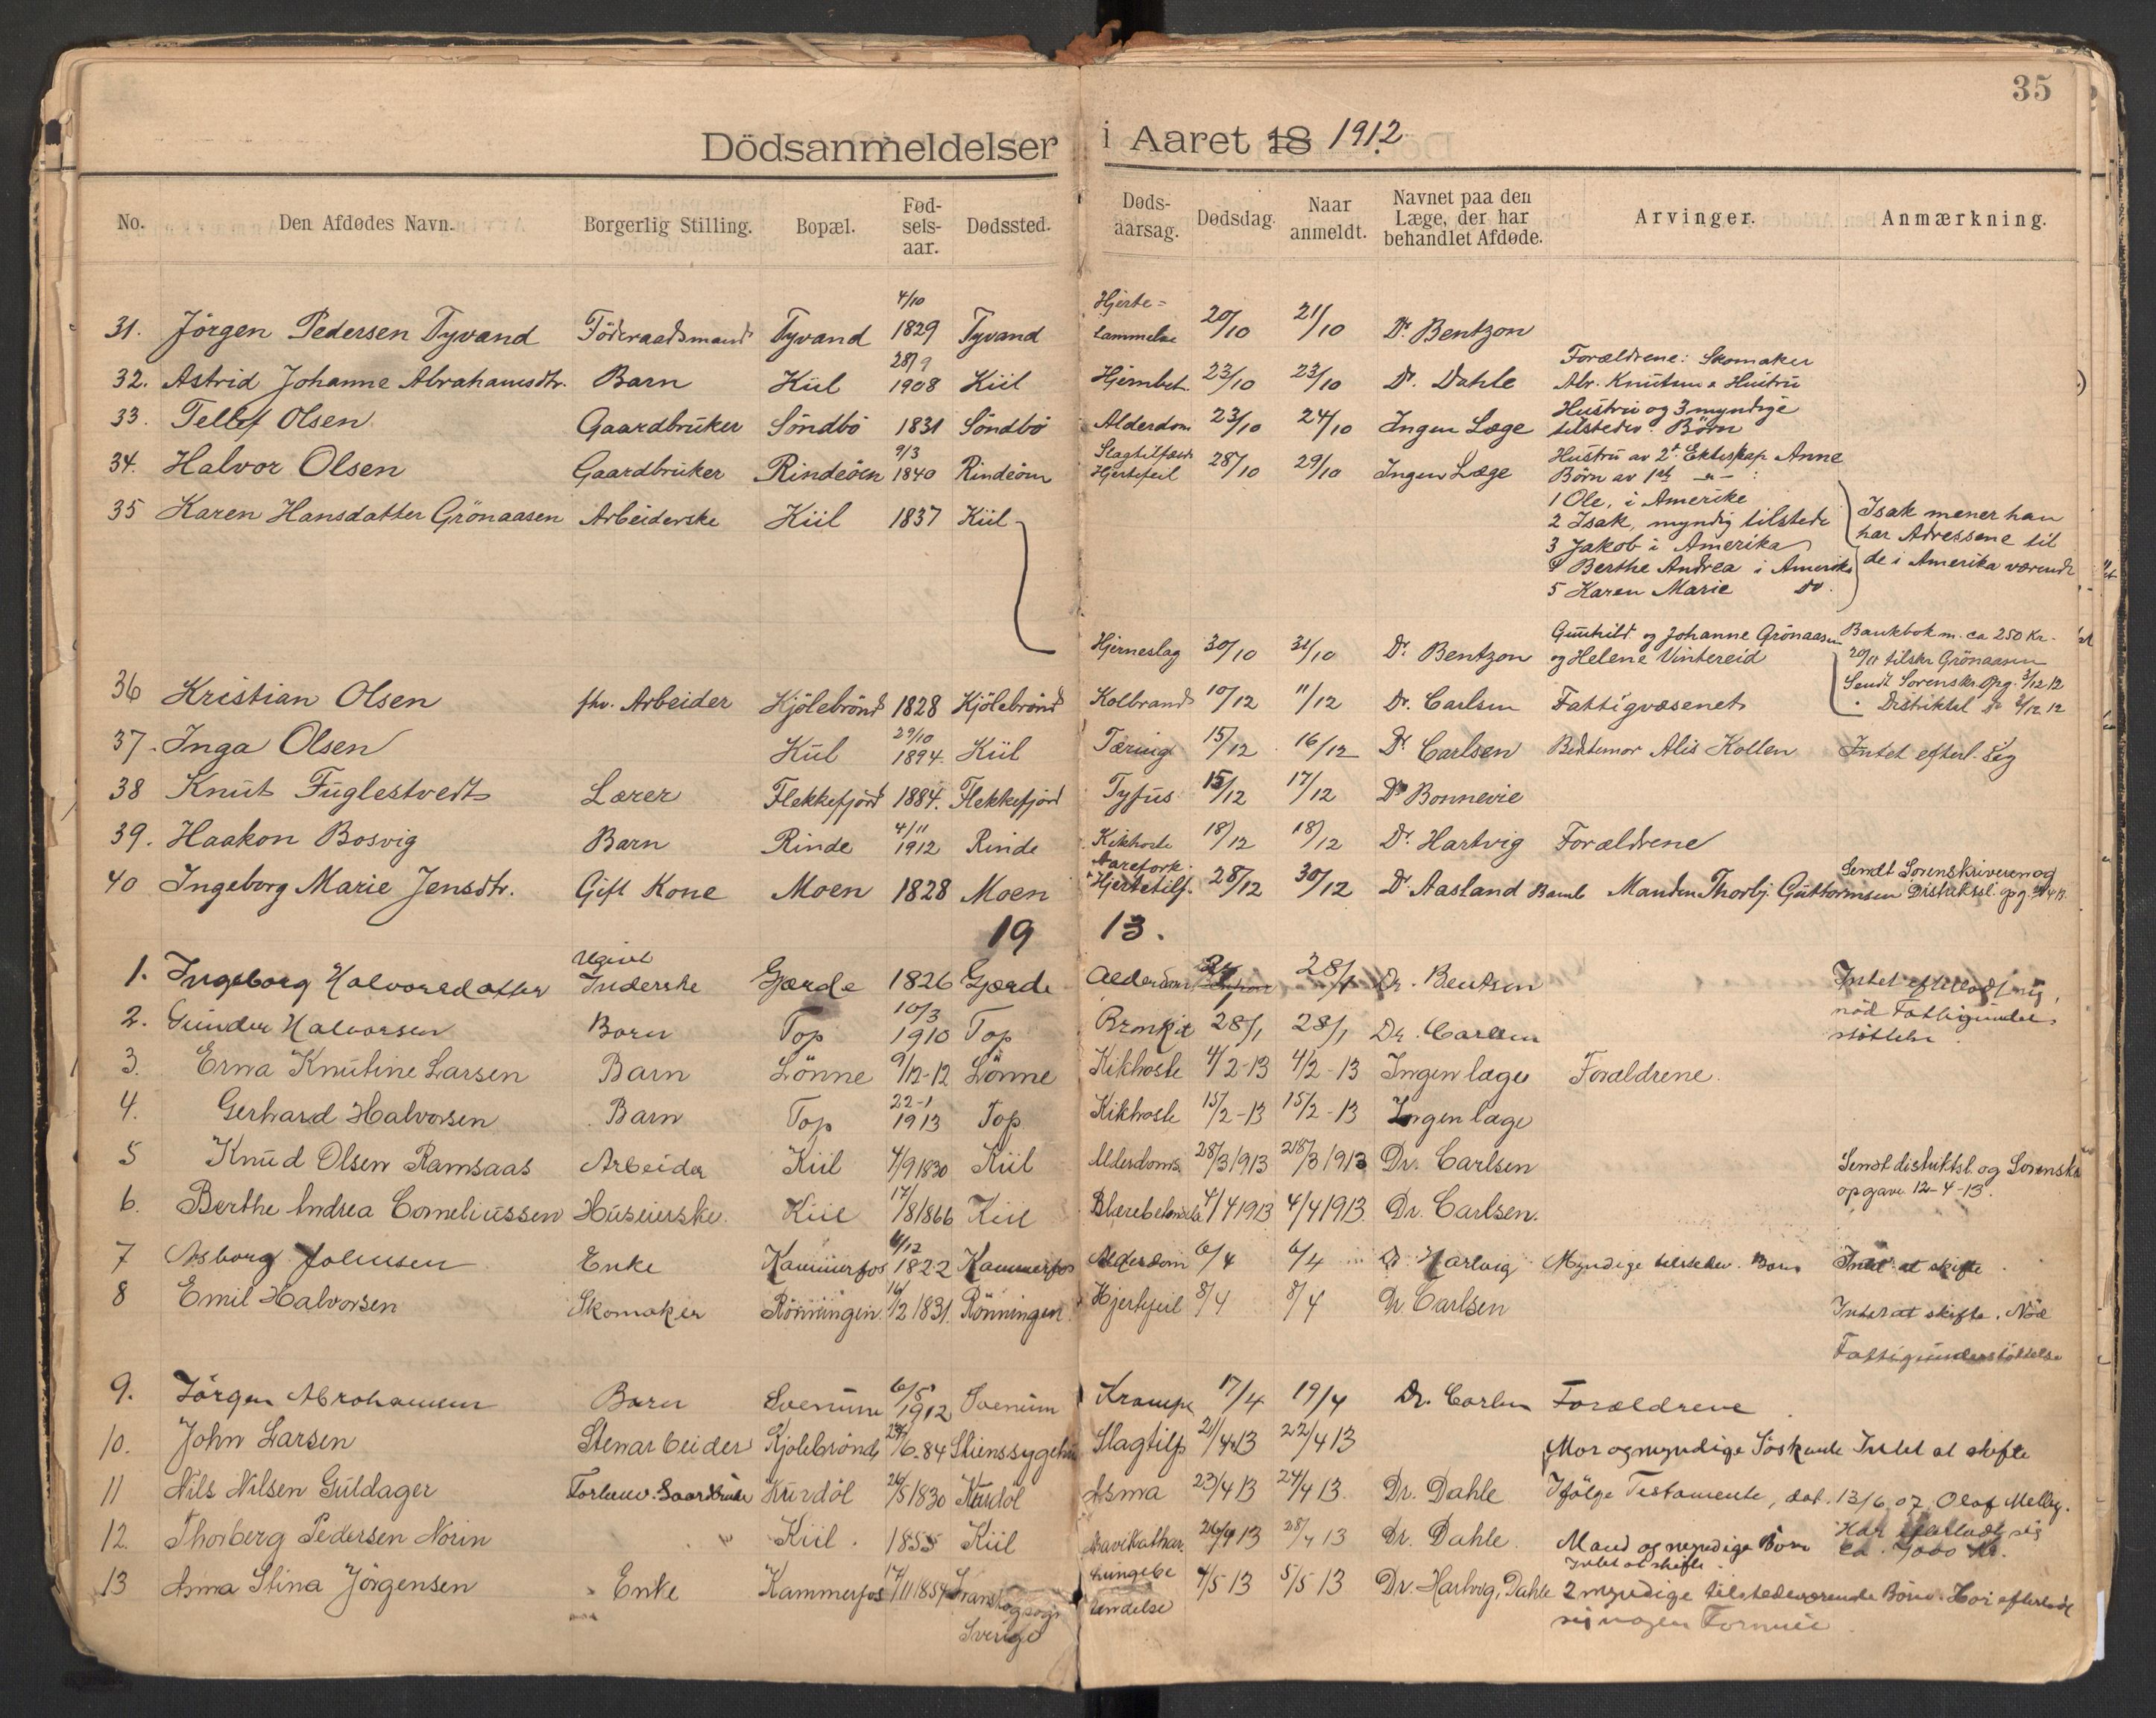 35
Dödsanmeldelser i Aaret 18 1912
No. Den Afdødes Navn. Borgerlig Stilling. Bopæl. Fød-sels-aar. Dødssted. Døds-aarsag. Dødsdag. Naar anmeldt. Navnet paa den Læge, der har behandlet Afdøde. Arvinger. Anmærkning.
31. Jörgen Pedersen Tyvand Föderaadsmand Tyvand 4/10 1829 Tyvand Hjerte-lammelse 20/10 21/10 Dr. Bentzon
32. Astrid Johanne Abrahamsdtr. Barn Kiil 28/9 1908 Kiil Hjernbet. 23/10 23/10 Dr. Dahle Forældrene: Skomaker
Abr. Knutsen & Hustru
33. Tellef Olsen Gaardbruker Söndbö 1831 Söndbö Alderdom 23/10 24/10 Ingen Læge Hustru og 3 myndige
tilstedev. Börn
34. Halvor Olsen Gaardbruker Rindeöen 9/3 1840 Rindeöen Slagtilfælde Hjertefeil 28/10 29/10 Ingen Læge Hustru av 2t Ekteskap Anne
Börn av 1ste -"- :
1 Ole, i Amerike
2 Isak, myndig tilstede
3 Jakob i Amerika
4 Berthe Andrea i Amerika
5 Karen Marie Do.
Isak mener han
har Adressene til
de i Amerika værende
35 Karen Hansdatter Grönaasen Arbeiderske Kiil 1837 Kiil Hjerneslag 30/10 31/10 Dr. Bentzon Gunhild og Johanne Grönaasen
og Helene Vintereid
Bankbok m. ca 250 Kr.
20/11 tilskr Grönaasen
Sendt Sorenskr. Opg. 3/12 12
Distriktsl Do 3/12 12
36 Kristian Olsen fhv. Arbeider Kjölebrönd 1828 Kjölebrönd Kolbrand 10/12 11/12 Dr. Carlsen Fattigvæsenet
37. Inga Olsen Kiil 29/10 1894. Kiil Tæring 15/12 16/12 Dr. Carlsen Bedstemor Alis Kollen Intet efterl. sig
38 Knut Fuglestvedt Lærer Flekkefjord 1884. Flekkefjord Tyfus 15/12 17/12 Dr Bonnevie
39. Haakon Bosvig Barn Rinde 4/11 1912 Rinde Kikhoste 18/12 18/12 Dr. Hartvig Forældrene
40 Ingeborg Marie Jensdtr. Gift Kone Moen 1828 Moen Aarefork. Hjertetilf. 28/12 30/12 Dr. Aasland Bamb Manden Thorbj. Guttormsen Sendt Sorenskriveren og
Distriktsl. opg.
1913.
1. Ingeborg Halvorsdatter Ugivt Inderske Gjærde 1826 Gjærde Alderdom 28/1 Dr. Bentsen Intet efterladt sig,
nöd Fattigunder-
støttelse
2. Gunder Halvorsen Barn Top 10/3 1910 Top Bronkit 28/1 28/1 Dr. Carlsen
3. Erna Knutine Larsen Barn Lönne 9/12-12 Lönne Kikhoste 4/2-13 4/2-13 Ingen læge Forældrene.
4. Gerhard Halvorsen Barn Top 22-1 1913 Top Kikhoste 15/2-13 15/2-13 Ingen læge
5 Knud Olsen Ramsaas Arbeider Kiil 4/9 1830 Kiil Alderdoms. 28/3 1913 28/3 1913 Dr. Carlsen Sendt distriktsl. og Sorenskr.
opgave 12-4-13.
6. Berthe Andrea Corneliussen Huseierske. Kiil 17/8 1866 Kiil 4/4 1913 4/4 1913 Dr. Carlsen.
7 Asborg Johnsen Enke Kammerfos 6/12 1822 Kammerfos Alderdom 6/4 6/4 Dr Hartvig Myndige tilstedev. Börn Intet at skifte
8 Emil Halvorsen Skomaker Rönningen 16/2 1831. Rönningen Hjertefeil 8/4 8/4 Dr. Carlsen Intet at skifte. Nöd
Fattigunderstöttelse
9. Jörgen Abrahamsen Barn Svenum 6/5 1912 Svenum Krampe 17/4 19/4 Dr. Carlsen Forældrene
10. John Larsen Stenarbeider Kjölebrönd 6-84 Skienssygehus Slagtilf 21/4 13 22/4 13 Mor og myndige Söskende Intet at skifte
11 Nils Nilsen Guldager Gaardbruker Kurdöl 26/5 1830 Kurdöl Asma 23/4 13 24/4 13. Dr. Dahle Ifölge Testamente, dat. 13/6 07, Olaf Melby.
Har efterladt sig
ca. 7000 Kr.
12. Thorberg Pedersen Norin " Kiil. 1855 Kiil 26/4 13 28/4 13 Dr. Dahle. Mand og myndige Börn
Intet at skifte.
13 Anna Stina Jörgensen Enke Kammerfos 17/11 1854 Sverige Lungebetændelse 4/5 13 5/5 13 Dr. Hartvig, Dahle 2 myndige tilstedeværende Börn. Har efterladt
sig nogen Formue.